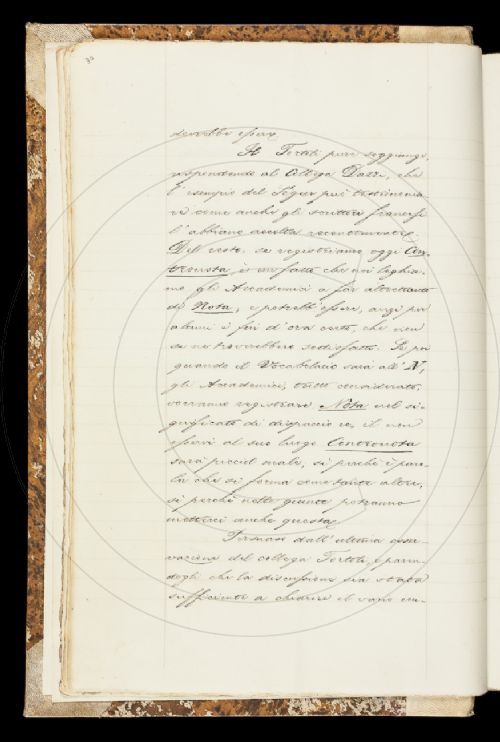 32
dovrebbe essere.
Il Tortoli pure soggiunge,
rispondendo al Collega Dazzi, che
l'esempio del Ségur può testimonia-
re come anche gli scrittori francesi
l'abbiano accolta recentemente.
Del resto, se registriamo oggi Con-
tronota, è un fatto che noi leghia-
mo gli Accademici a far altrettanto
di Nota, e potrebb'essere, anzi per
alcuni è fin d'ora certo, che non
se ne troverebbero sodisfatti. Se poi
quando il Vocabolario sarà all'N,
gli Accademici, tutto considerato,
vorranno registrare Nota nel si-
gnificato di dispaccio ec., il non
esservi al suo luogo Contronota
sarà piccol male, sì perchè è paro-
la che si forma come tante altre,
sì perchè nelle giunte potranno
metterci anche questa.
dall'ultima osser-
vazione del collega Tortoli, e paren-
dogli che la discussione sia stata
sufficiente a chiarire il vario